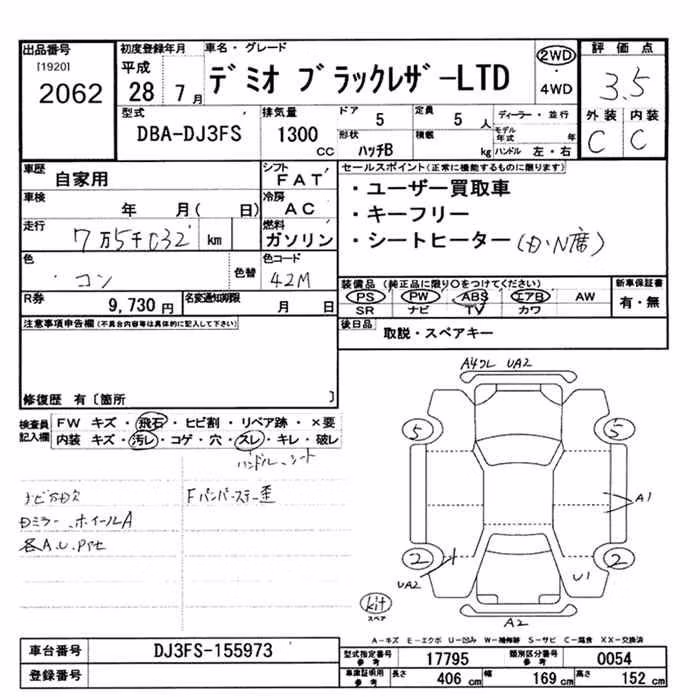 出品番号
[1920]
2062
初度登録年月
平成
28 7月
車名・グレード
デミオ ブラックレザーLTD
2WD
・
4WD
評価点
3.5
外装 内装
C C
型式
DBA-DJ3FS
排気量
1300 CC
ドア 5
定員 5 人
ディーラー・並行
形状 ハッチB
積載 kg
モデル年式 年
ハンドル 左・右
車歴
自家用
シフト
FAT
車検
年 月( 日)
冷房
AC
走行
7万5千032 km
燃料
ガソリン
色
コン
色替
色コード
42M
R券
9,730 円
名変通知期限
月 日
セールスポイント(正常に機能するものに限ります)
・ユーザー買取車
・キーフリー
・シートヒーター(D・N席)
装備品(純正品に限り○をつけてください)
PS PW ABS エアB AW
SR ナビ TV カワ
新車保証書
有・無
後日品
取説・スペアキー
注意事項申告欄(不具合内容等は具体的に記入して下さい)
修復歴 有〔箇所 〕
検査員記入欄
FW キズ・飛石・ヒビ割・リペア跡・×要
内装 キズ・汚レ・コゲ・穴・スレ・キレ・破レ
ハンドル、シート
Fバンパーステー歪
Dミラー、ホイールA
各A.U.
A4フレ UA2
5 5
A1
2 2
UA2
U1
kit
スペア
A2
A-キズ E-エクボ U-凹み W-補修跡 S-サビ C-腐食 XX-交換済
車台番号
DJ3FS-155973
登録番号
型式指定番号 参考
17795
類別区分番号 参考
0054
車庫証明用 参考
長さ 406 cm
幅 169 cm
高さ 152 cm